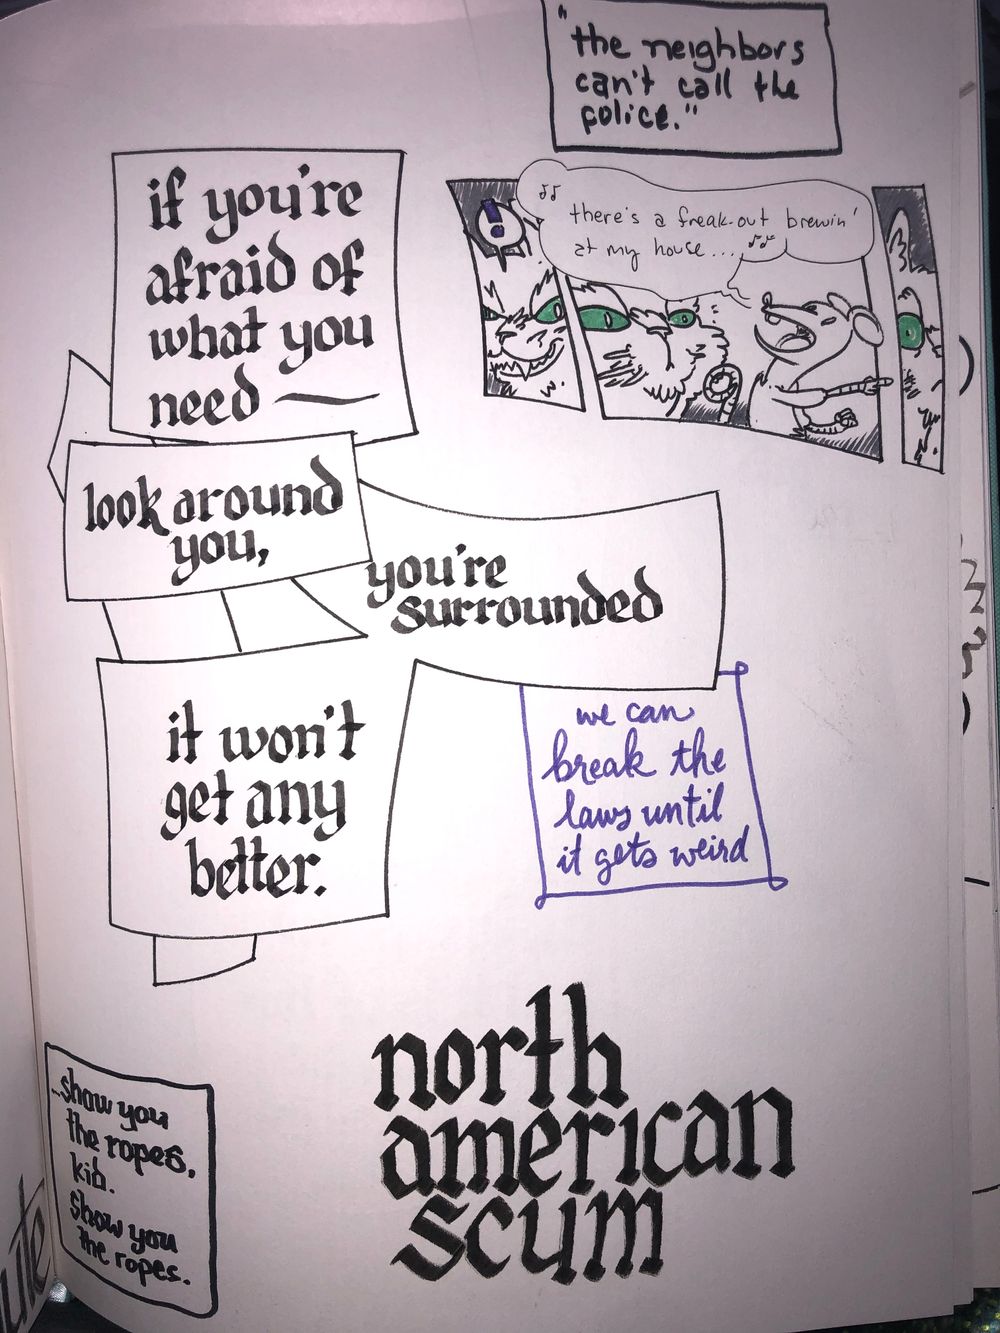 "the neighbors
can't call the
police."
if you're
afraid of
what you
need —
!
there's a freak-out brewin'
at my house...
look around
you,
you're
surrounded
it won't
get any
better.
we can
break the
laws until
it gets weird
north
american
scum
...show you
the ropes,
kid.
show you
the ropes.